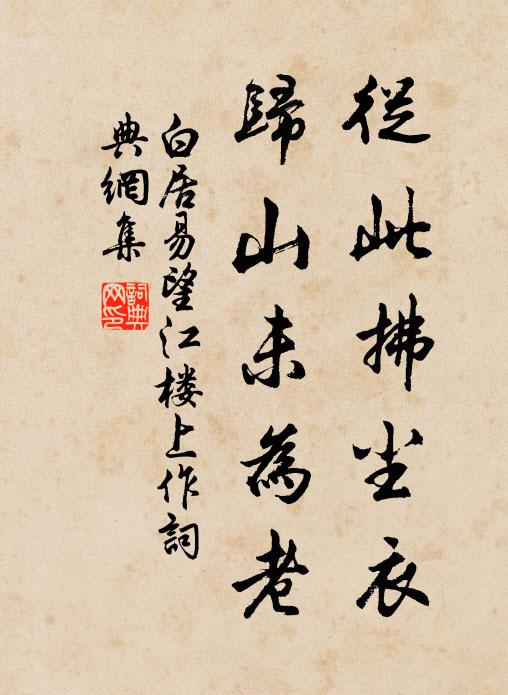 從此拂尘衣
歸山未為老
白居易望江楼上作詞
典網集
詞典
网印